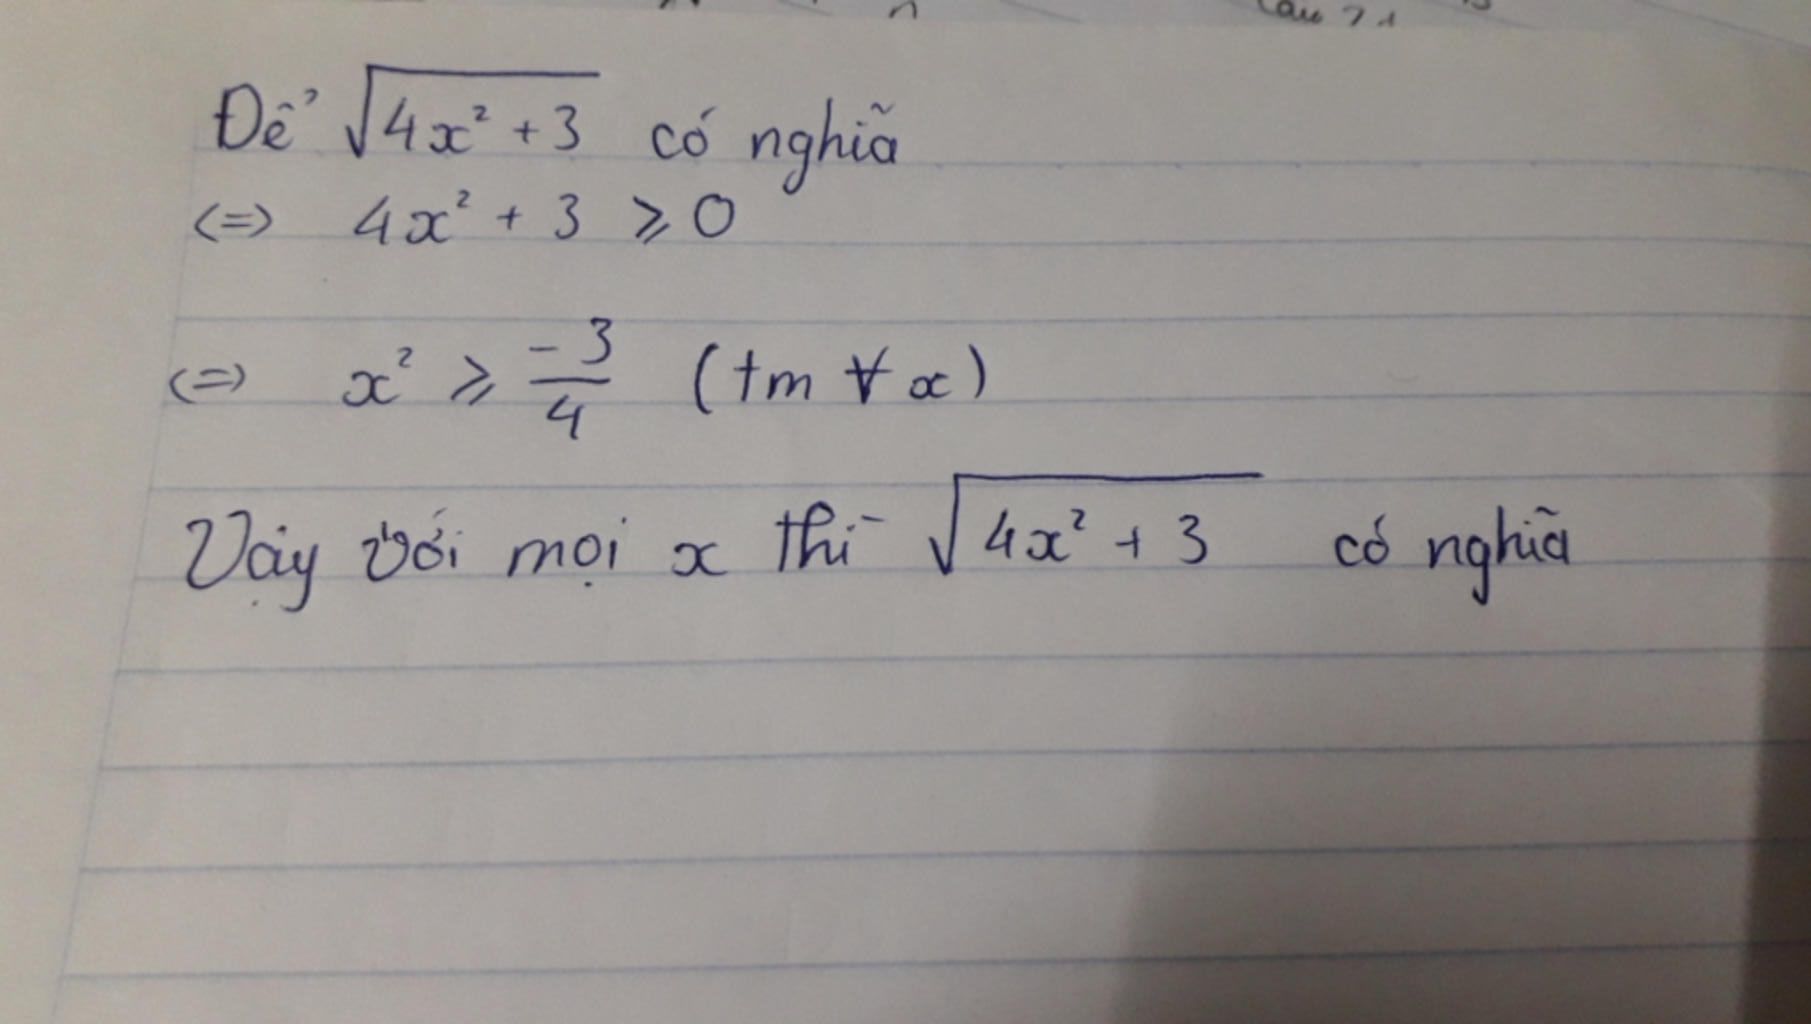 Để √4x² + 3 có nghĩa
<=> 4x² + 3 ⩾ 0
<=> x² ⩾ -3/4 (tm ∀ x)
Vậy với mọi x thì √4x² + 3 có nghĩa